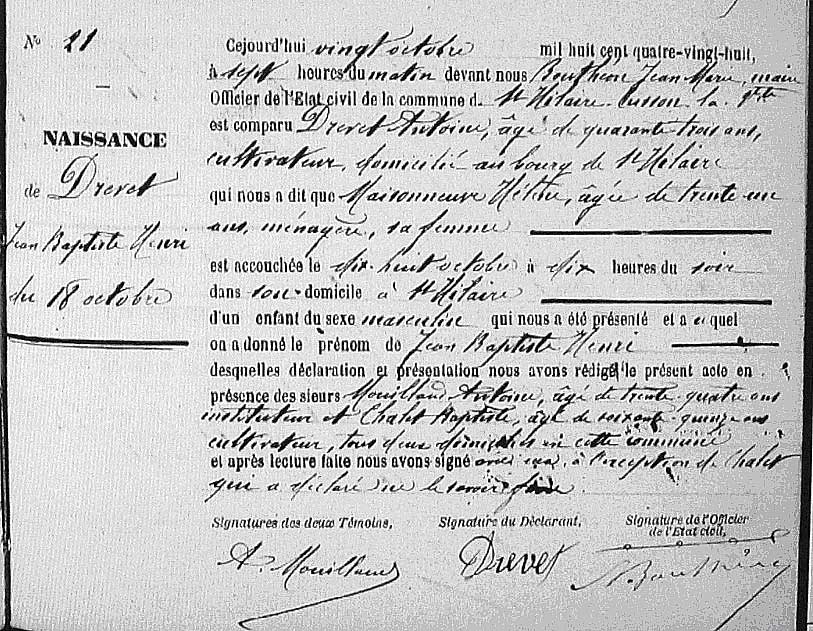 N° 21
NAISSANCE
de Drevet
Jean Baptiste Henri
du 18 octobre
Cejourd'hui vingt octobre mil huit cent quatre-vingt-huit,
à sept heures du matin devant nous Bouthéon Jean Marie, maire
Officier de l'Etat civil de la commune d. St Hilaire-Cusson-la-
est comparu Drevet Antoine, âgé de quarante trois ans,
cultivateur, domicilié au bourg de St Hilaire
qui nous a dit que Maisonneuve Hélène, âgée de trente un
ans, ménagère, sa femme
est accouchée le dix-huit octobre à dix heures du soir
dans son domicile à St Hilaire
d'un enfant du sexe masculin qui nous a été présenté et auquel
on a donné le prénom de Jean Baptiste Henri
desquelles déclaration et présentation nous avons rédigé le présent acte en
présence des sieurs Mouilland Antoine, âgé de trente-quatre ans
instituteur et Chalet Baptiste, âgé de soixante-quinze ans
cultivateur, tous deux domiciliés en cette commune
et après lecture faite nous avons signé avec eux, à l'exception de Chalet
qui a déclaré ne le savoir faire.
Signatures des deux Témoins,
Signature du Déclarant,
Signature de l'Officier
de l'Etat civil,
A. Mouilland
Drevet